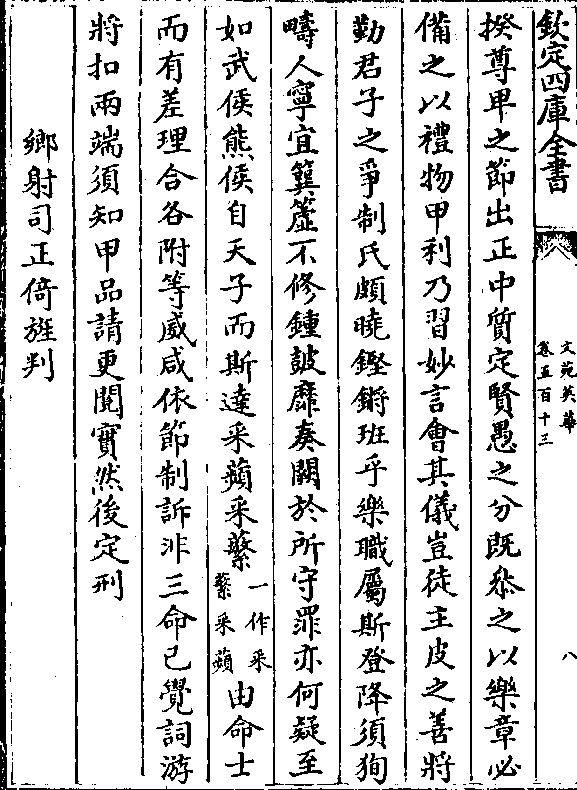 欽定四庫全書
文苑英華
卷五百十三
八
揆尊卑之節出正中質定賢愚之分既叅之以樂章必
備之以禮物甲利乃習妙言會其儀豈徒主皮之善將
勤君子之爭制氏頗曉鏗鏘班乎樂職屬斯登降須狥
疇人寧宜簨簴不修鍾皷靡奏闕於所守罪亦何疑至
如武侯熊侯自天子而斯達采蘋采蘩一作采蘩采蘋由命士
而有差理合各附等威咸依節制訴非三命已覺詞游
將扣兩端須知甲品請更閱實然後定刑
鄉射司正倚旌判